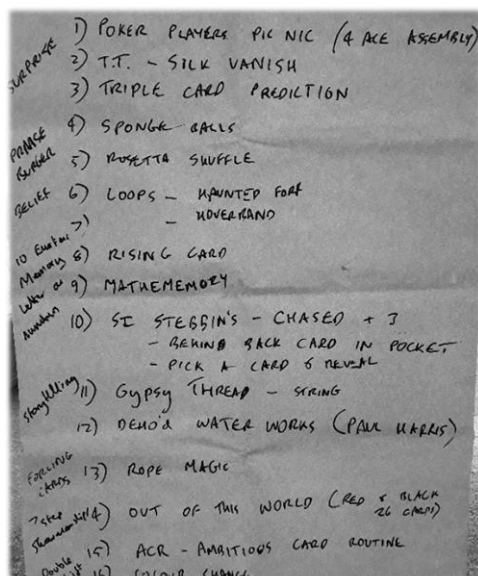 SURPRISE
1) POKER PLAYERS PIC NIC (4 ACE ASSEMBLY)
2) T.T. - SILK VANISH
3) TRIPLE CARD PREDICTION
PRAISE BURGER
4) SPONGE BALLS
5) ROSETTA SHUFFLE
BELIEF 6) LOOPS - HAUNTED FORK
7) - HOVERBAND
10
Memory 8) RISING CARD
Letter or 9) MATHEMEMORY
10) SI STEBBIN'S - CHASED + 3
- BEHIND BACK CARD IN POCKET
- PICK A CARD & REVEAL
Storytelling 11) GYPSY THREAD - STRING
12) DEMO'd WATER WORKS (PAUL HARRIS)
FORCING CARDS 13) ROPE MAGIC
7 step 14) OUT OF THIS WORLD (RED & BLACK
Showmanship 26 CARDS)
Double 15) ACR - AMBITIOUS CARD ROUTINE
16) COLOUR CHANGE